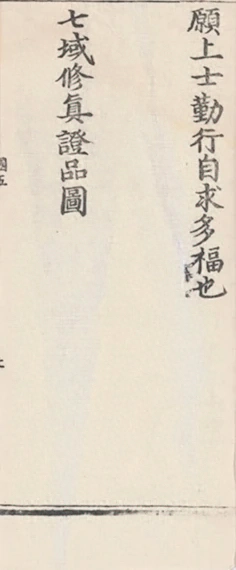 願上士勤行自求多福也
七域修眞證品圖
國五